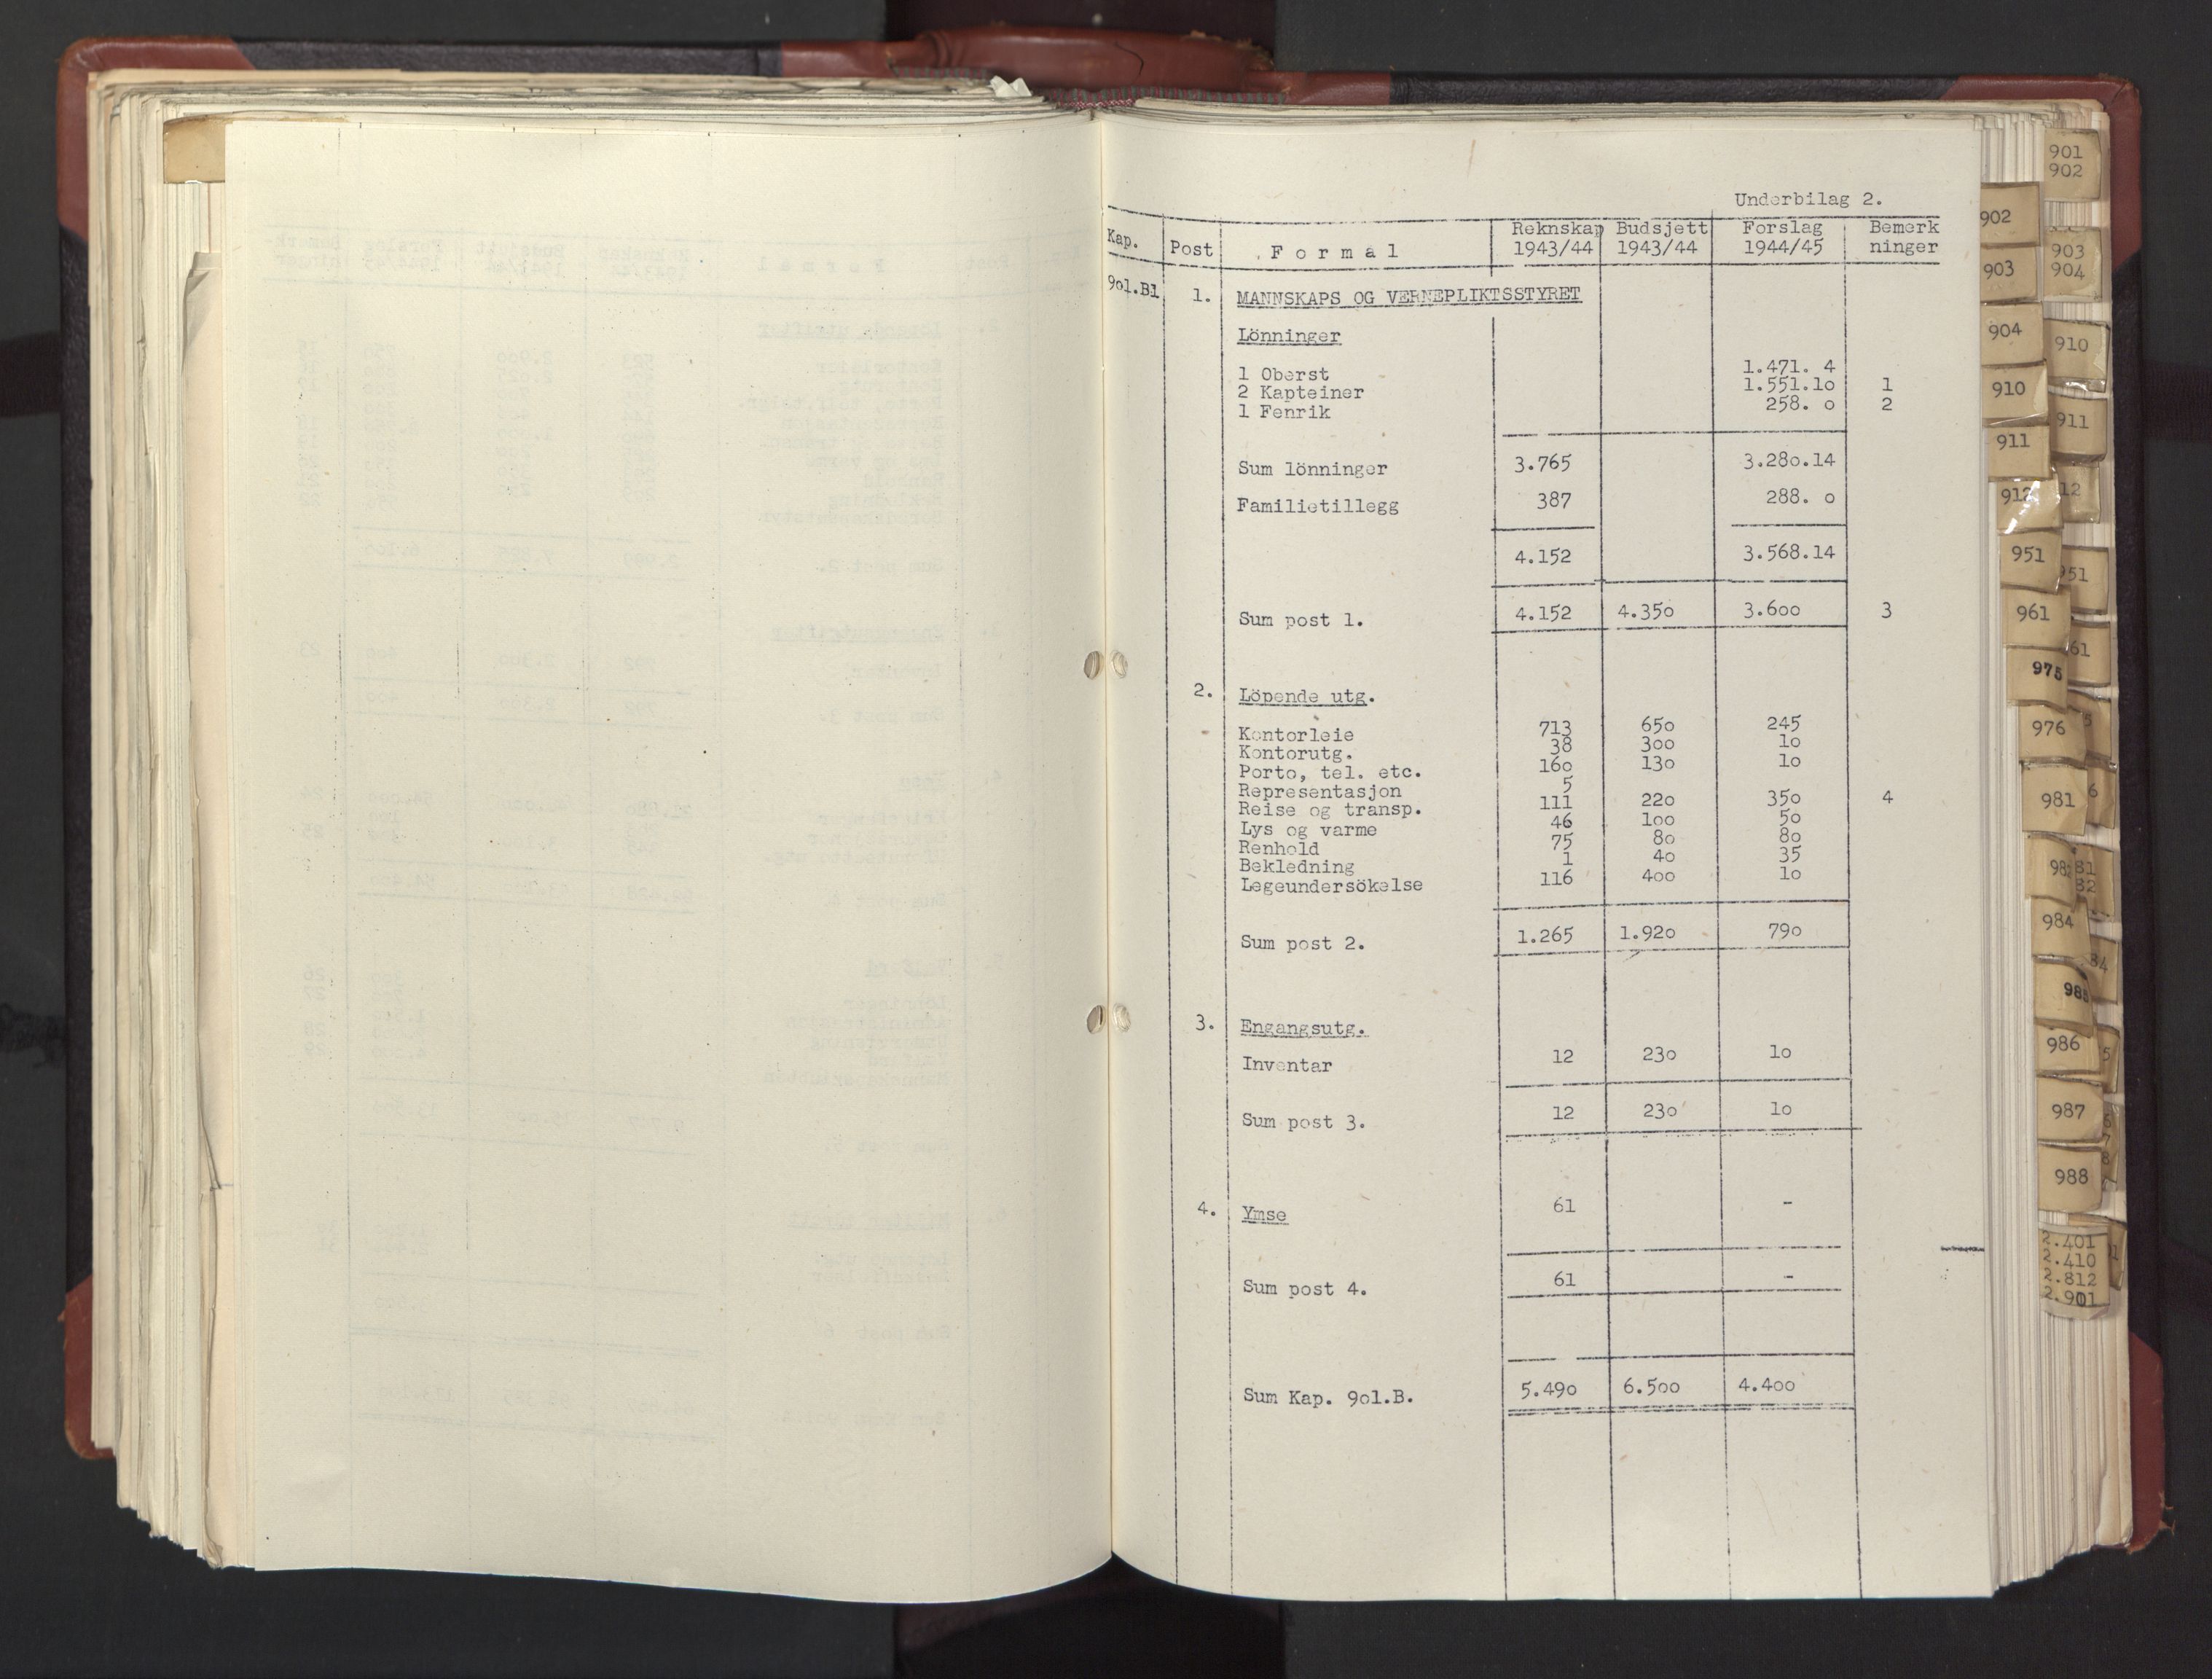 Underbilag 2.
Kap. Post Formål Reknskap 1943/44 Budsjett 1943/44 Forslag 1944/45 Bemerk ninger
9o1.B1 1. MANNSKAPS OG VERNEPLIKTSSTYRET
Lönninger
1 Oberst 1.471. 4
2 Kapteiner 1.551.1o 1
1 Fenrik 258. o 2
Sum lönninger 3.765 3.28o.14
Familietillegg 387 288. o
4.152 3.568.14
Sum post 1. 4.152 4.35o 3.6oo 3
2. Löpende utg.
Kontorleie 713 65o 245
Kontorutg. 38 3oo 1o
Porto, tel. etc. 16o 13o 1o
Representasjon 5
Reise og transp. 111 22o 35o 4
Lys og varme 46 1oo 5o
Renhold 75 8o 8o
Bekledning 1 4o 35
Legeundersökelse 116 4oo 1o
Sum post 2. 1.265 1.92o 79o
3. Engangsutg.
Inventar 12 23o 1o
Sum post 3. 12 23o 1o
4. Ymse 61 -
Sum post 4. 61 -
Sum Kap. 9o1.B. 5.49o 6.5oo 4.4oo
901
902
902
903
904
903
904
910
910
911
911
912
12
951
51
961
61
975
976
981
982
81
82
984
84
985
986
987
988
2.401
2.410
2.812
2.901